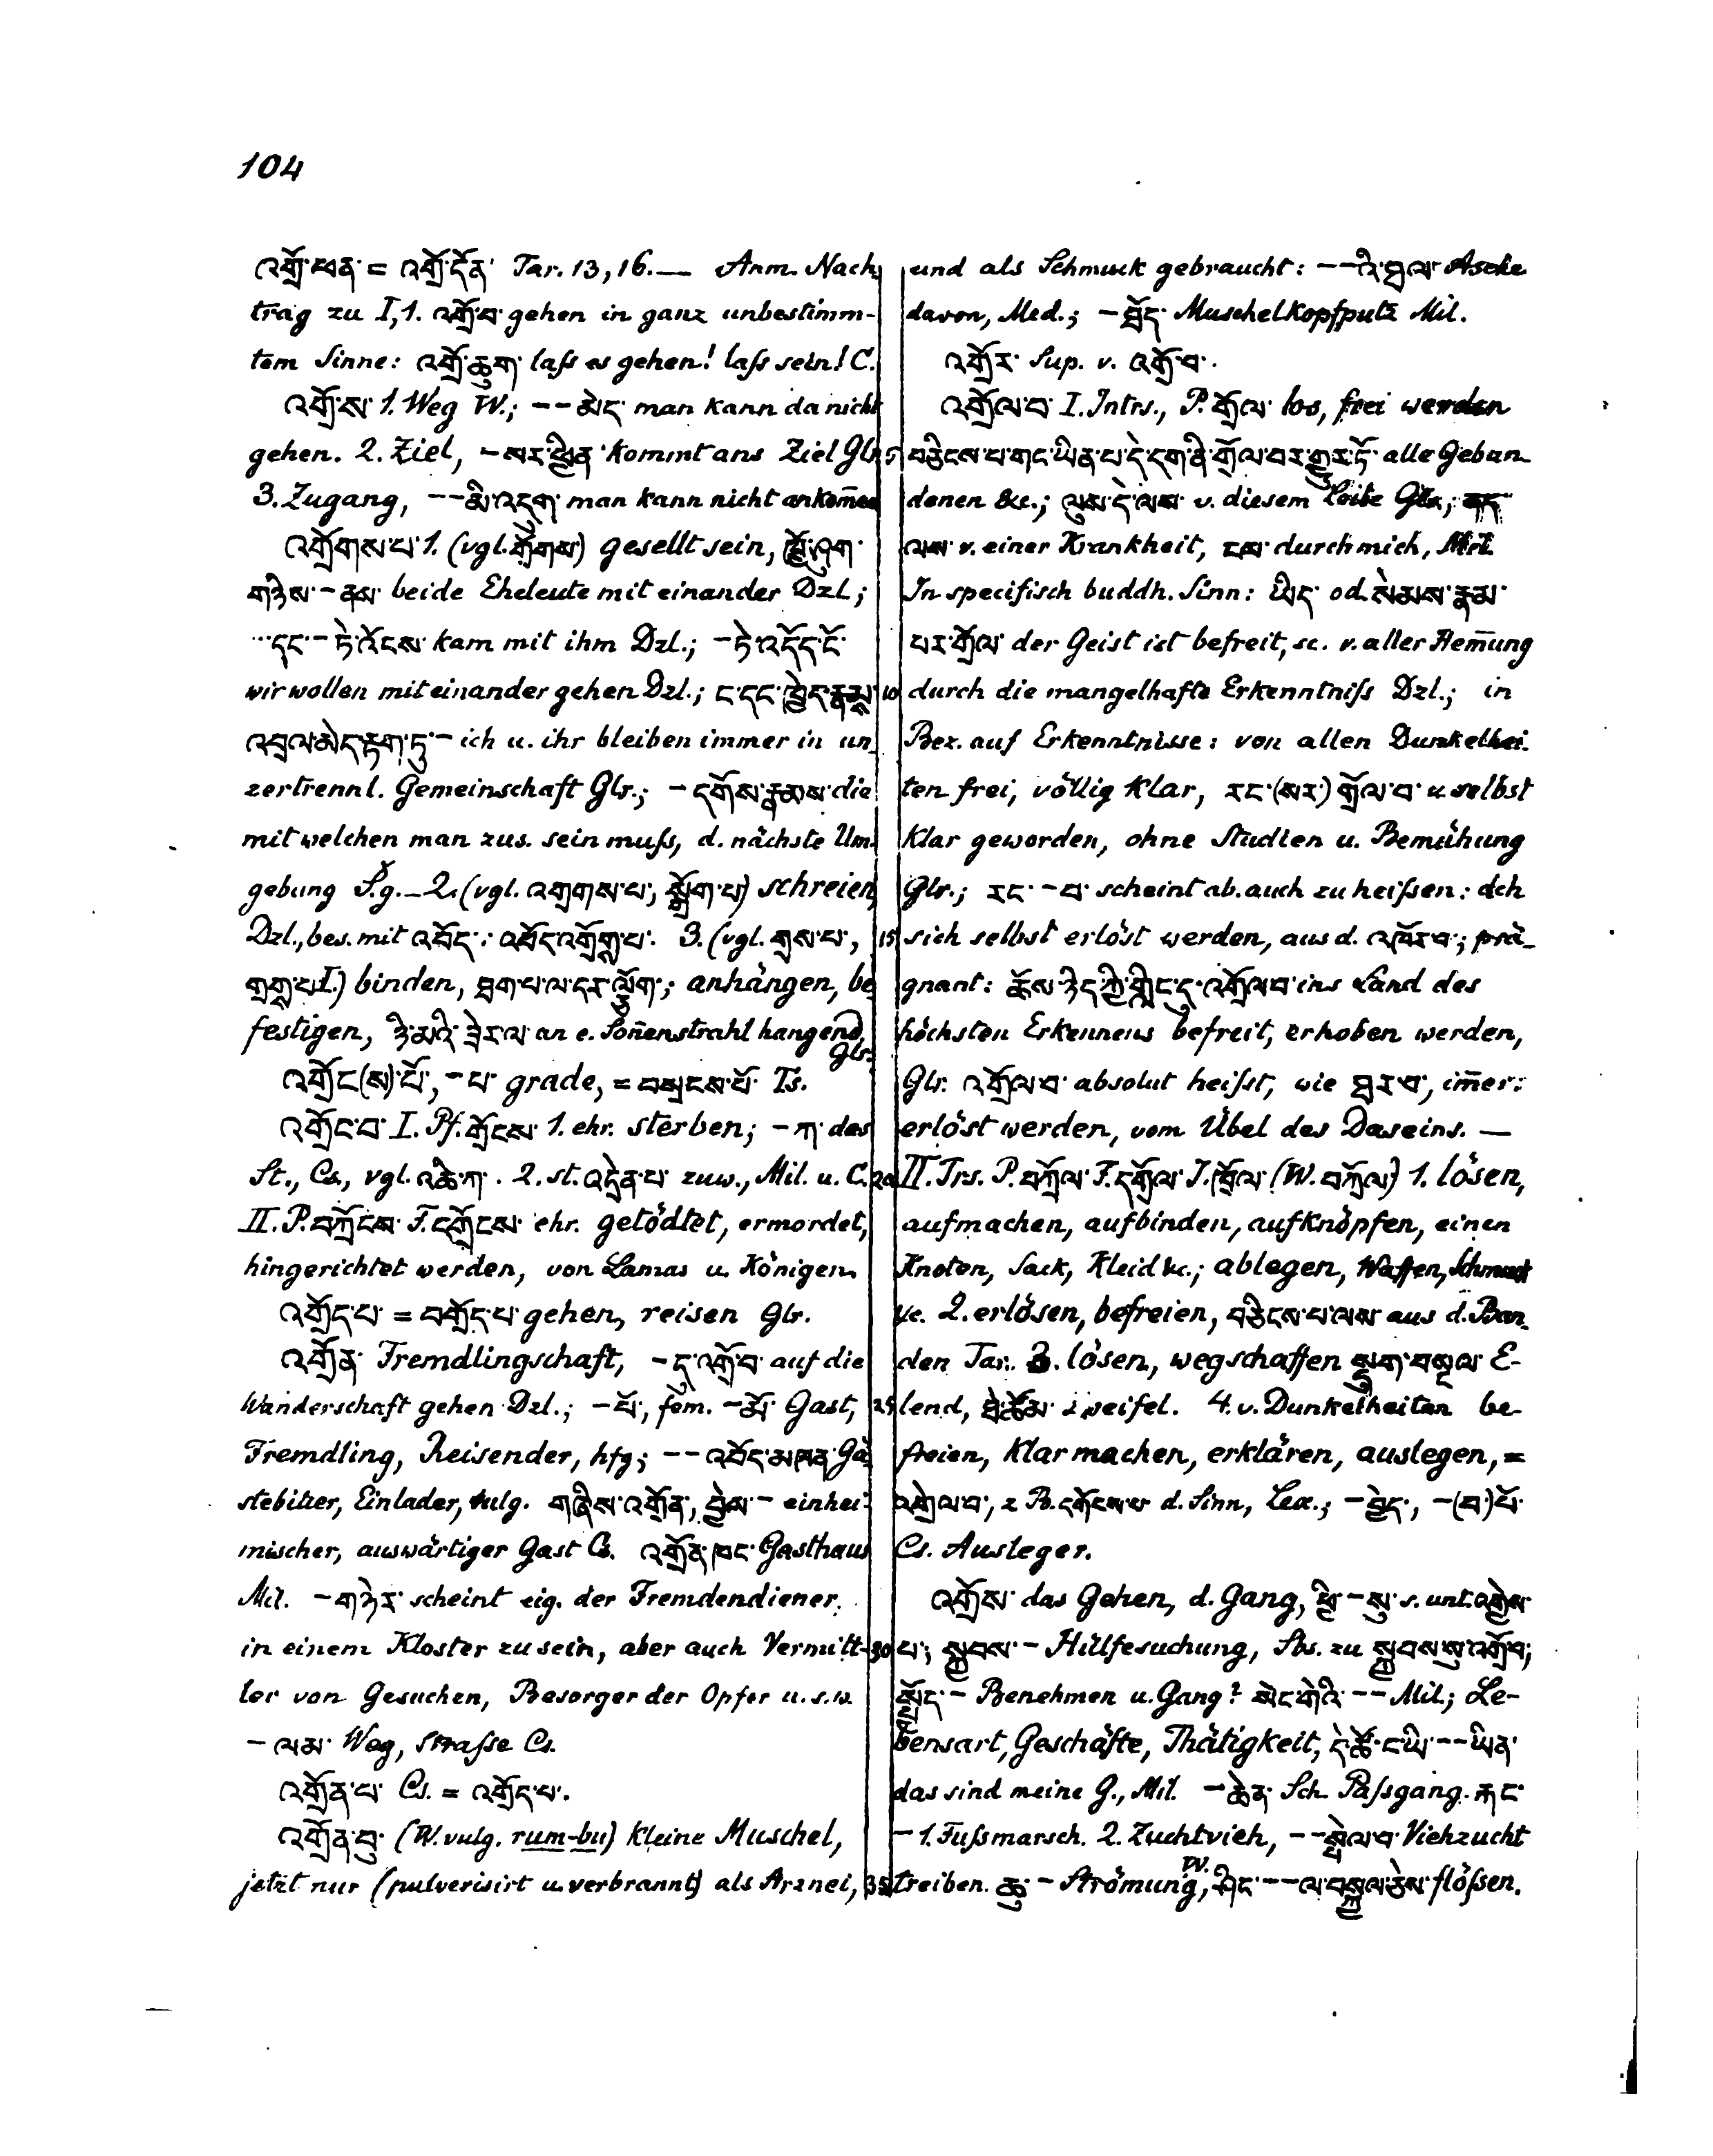 104
འགྲོ་ཕན་ = འགྲོ་དོན་ Tar. 13, 16. — Anm. Nach
trag zu I, 1. འགྲོ་བ་ gehen in ganz unbestimm-
tem Sinne: འགྲོ་ཆུག་ laſs es gehen! laſs sein! C.
འགྲོ་ས་ 1. Weg W.; -- མེད་ man kann da nicht
gehen. 2. Ziel, - སར་ཕྱིན་ kommt ans Ziel Glr.
3. Zugang, -- མི་འདུག་ man kann nicht ankom̄en
འགྲོགས་པ་ 1. (vgl. གྲོགས་) gesellt sein, ཁྱོ་ཤུག་
གཉིས་ - ནས་ beide Eheleute mit einander Dzl.;
... དང་ - ཏེ་འོངས་ kam mit ihm Dzl.; - ཏེ་འདོང་ངོ་
wir wollen mit einander gehen Dzl.; ང་དང་ཁྱེད་རྣམས་
འབྲལ་མེད་རྟག་ཏུ་ - ich u. ihr bleiben immer in un
zertrennl. Gemeinschaft Glr.; - དགོས་རྣམས་ die
mit welchen man zus. sein muſs, d. nächste Um
gebung S.g. - 2. (vgl. འགྲགས་པ་, སྒྲོག་པ་) schreien,
Dzl., bes. mit འབོད་: འབོད་འགྲོགས་པ་. 3. (vgl. གྲས་པ་,
གྲགས་པ་ I.) binden, ཐག་པ་ལ་དར་ལྕོག་; anhängen, be
festigen, ཉི་མའི་ཟེར་ལ་ an e. Son̄enstrahl hangend,
Glr.
འགྲོང་(ས་)པོ་, - པ་ grade, = བསྲངས་པོ་ Ts.
འགྲོང་བ་ I. Pf. གྲོངས་ 1. ehr. sterben; - ཀ་ das
St., Cs., vgl. འཆི་ཀ་. 2. st. འདྲེན་པ་ zuw., Mil. u. C.
II. P. བཀྲོངས་ F. དགྲོངས་ ehr. getödtet, ermordet,
hingerichtet werden, von Lamas u. Königen.
འགྲོད་པ་ = བགྲོད་པ་ gehen, reisen Glr.
འགྲོན་ Fremdlingschaft, - དུ་འགྲོ་བ་ auf die
Wanderschaft gehen Dzl.; - པོ་, fem. - མོ་ Gast,
Fremdling, Reisender, hfg; -- འབོད་མཁན་ Gä
stebitter, Einlader, vulg. གཞིས་འགྲོན་, བྱེས་ - einhei
mischer, auswärtiger Gast Cs. འགྲོན་ཁང་ Gasthaus
Mil. - གཉེར་ scheint eig. der Fremdendiener
in einem Kloster zu sein, aber auch Vermitt-
ler von Gesuchen, Besorger der Opfer u.s.w.
- ལམ་ Weg, Straſse Cs.
འགྲོན་པ་ Cs. = འགྲོད་པ་.
འགྲོན་བུ་ (W. vulg. rum-bu) kleine Muschel,
jetzt nur (pulverisirt u. verbrannt) als Arznei,
und als Schmuck gebraucht: -- འི་ཐལ་ Asche
davon, Med.; - ཐོད་ Muschelkopfputz Mil.
འགྲོར་ Sup. v. འགྲོ་བ་.
འགྲོལ་བ་ I. Intrs., P. གྲོལ་ los, frei werden
5 བཅིངས་པ་གང་ཡིན་པ་དེ་དག་ནི་གྲོལ་བར་གྱུར་ཏོ་ alle Gebun
denen &c.; ལུས་དེ་ལས་ v. diesem Leibe Glr.; ནད་
ལས་ v. einer Krankheit, ངས་ durch mich, Mil.
In specifisch buddh. Sinn: ཡིད་ od. སེམས་རྣམ་
པར་གྲོལ་ der Geist ist befreit, sc. v. aller Hem̄ung
10 durch die mangelhafte Erkenntniſs Dzl.; in
Bez. auf Erkenntnisse: von allen Dunkelhei
ten frei, völlig klar, རང་(སར་) གྲོལ་བ་ v. selbst
klar geworden, ohne Studien u. Bemühung
Glr.; རང་ - བ་ scheint ab. auch zu heiſsen: dch
15 sich selbst erlöst werden, aus d. འཁོར་བ་; prä-
gnant: རྫོས་ཉིད་ཀྱི་གླིང་དུ་འགྲོལ་བ་ ins Land des
höchsten Erkennens befreit, erhoben werden,
Glr. འགྲོལ་བ་ absolut heiſst, wie ཐར་བ་, im̄er:
erlöst werden, vom Übel des Daseins. —
20 II. Trs. P. བཀྲོལ་ F. དགྲོལ་ I. ཁྲོལ་ (W. བཀྲོལ་) 1. lösen,
aufmachen, aufbinden, aufknöpfen, einen
Knoten, Sack, Kleid &c.; ablegen, Waffen, Schmuck
&c. 2. erlösen, befreien, བཅིངས་པ་ལས་ aus d. Ban
den Tar. 3. lösen, wegschaffen སྡུག་བསྔལ་ E-
25 lend, ཐེ་ཚོམ་ Zweifel. 4. v. Dunkelheiten be-
freien, klar machen, erklären, auslegen, =
འགྲེལ་བ་, z B. དགོངས་པ་ d. Sinn, Lex.; - བྱེད་, - (བ་)པོ་
Cs. Ausleger.
འགྲོས་ das Gehen, d. Gang, ཕྱི་ - སུ་ s. unt. འགྱེས་
30 པ་; སྐྱབས་ - Hülfesuchung, Sbs. zu སྐྱབས་སུ་འགྲོ་བ་;
སྤྱོད་ - Benehmen u. Gang? སེང་གེའི་ -- Mil.; Le-
bensart, Geschäfte, Thätigkeit, དེ་ཚོ་ང་ཡི་ -- ཡིན་
das sind meine G., Mil. - ཆེན་ Sch. Paſsgang. རྐང་
- 1. Fuſsmarsch. 2. Zuchtvieh, -- སྤེལ་བ་ Viehzucht
35 treiben. ཆུ་ - Strömung, W. ཤིང་ -- ལ་བསྐྱལ་ཅེས་ flöſsen.